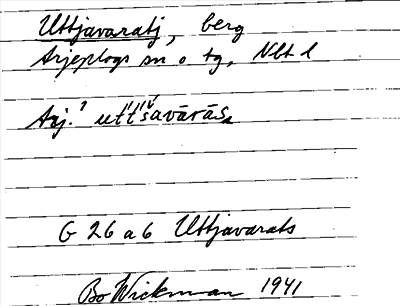 Uttjavaratj, berg
Arjeplogs sn o tg, Nbt l
G 26 a 6 Uttjavarats
Bo Wickman 1941